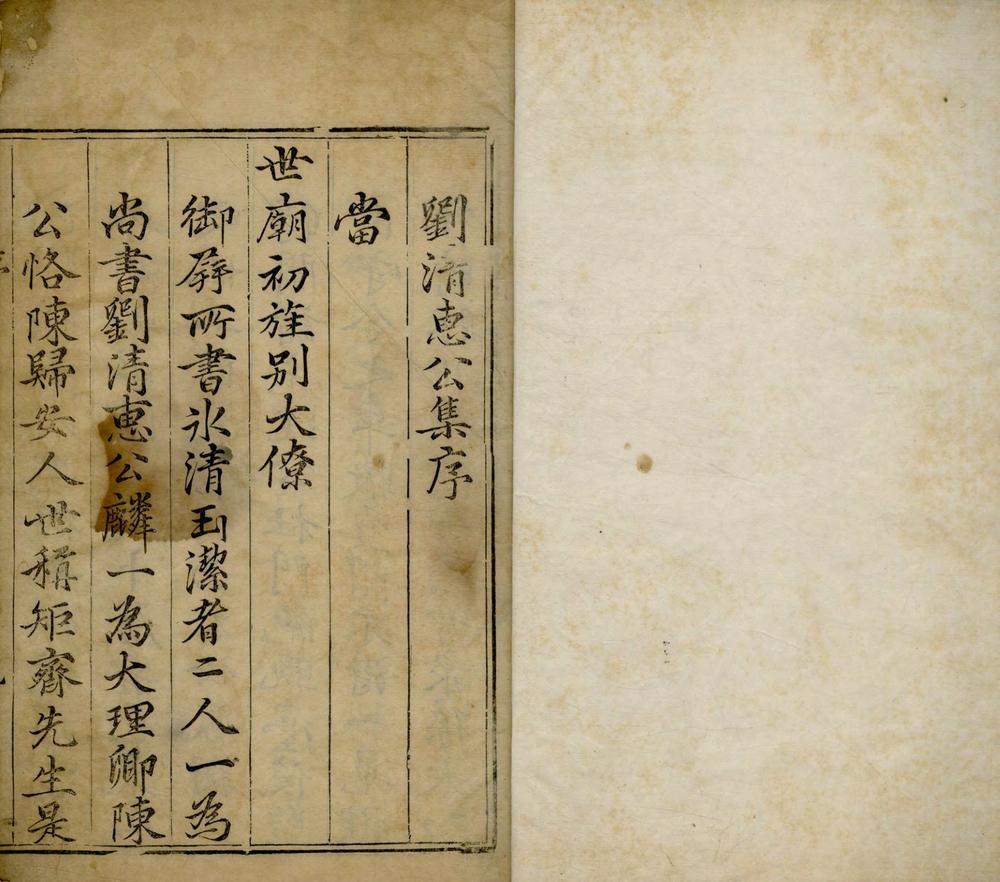 劉清惠公集序
當
世廟初旌別大僚
御屏所書氷清玉潔者二人一為
尚書劉清惠公麟一為大理卿陳
公恪陳歸安人世稱矩齋先生是